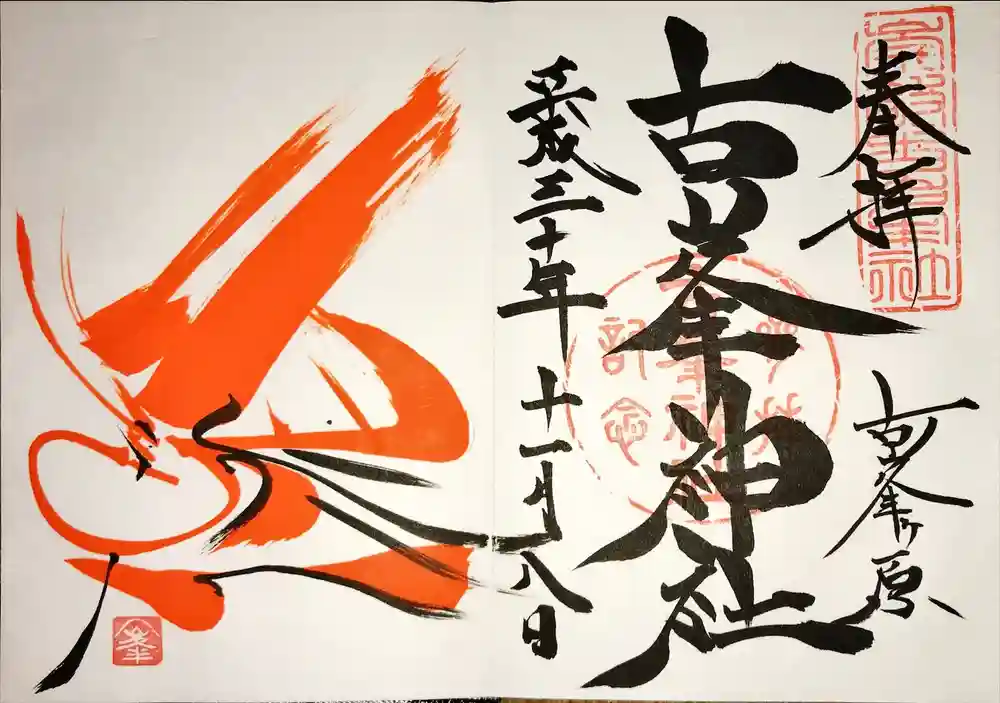 奉拝
古峯ヶ原
古峯神社
平成三十年
十一月八日
参拝
記念